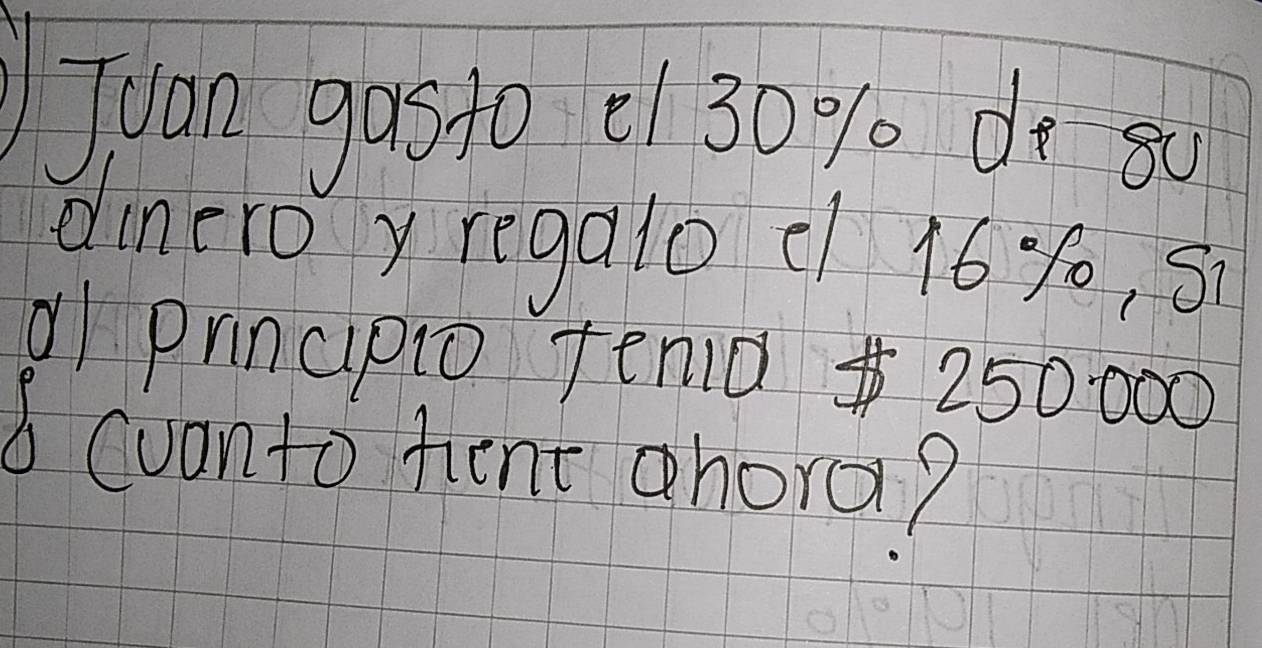 ) Juan gasto el 30% de su
dinero y regalo el 16%, si
al principio tenia $ 250.000
¿ Cuanto tiene ahora?